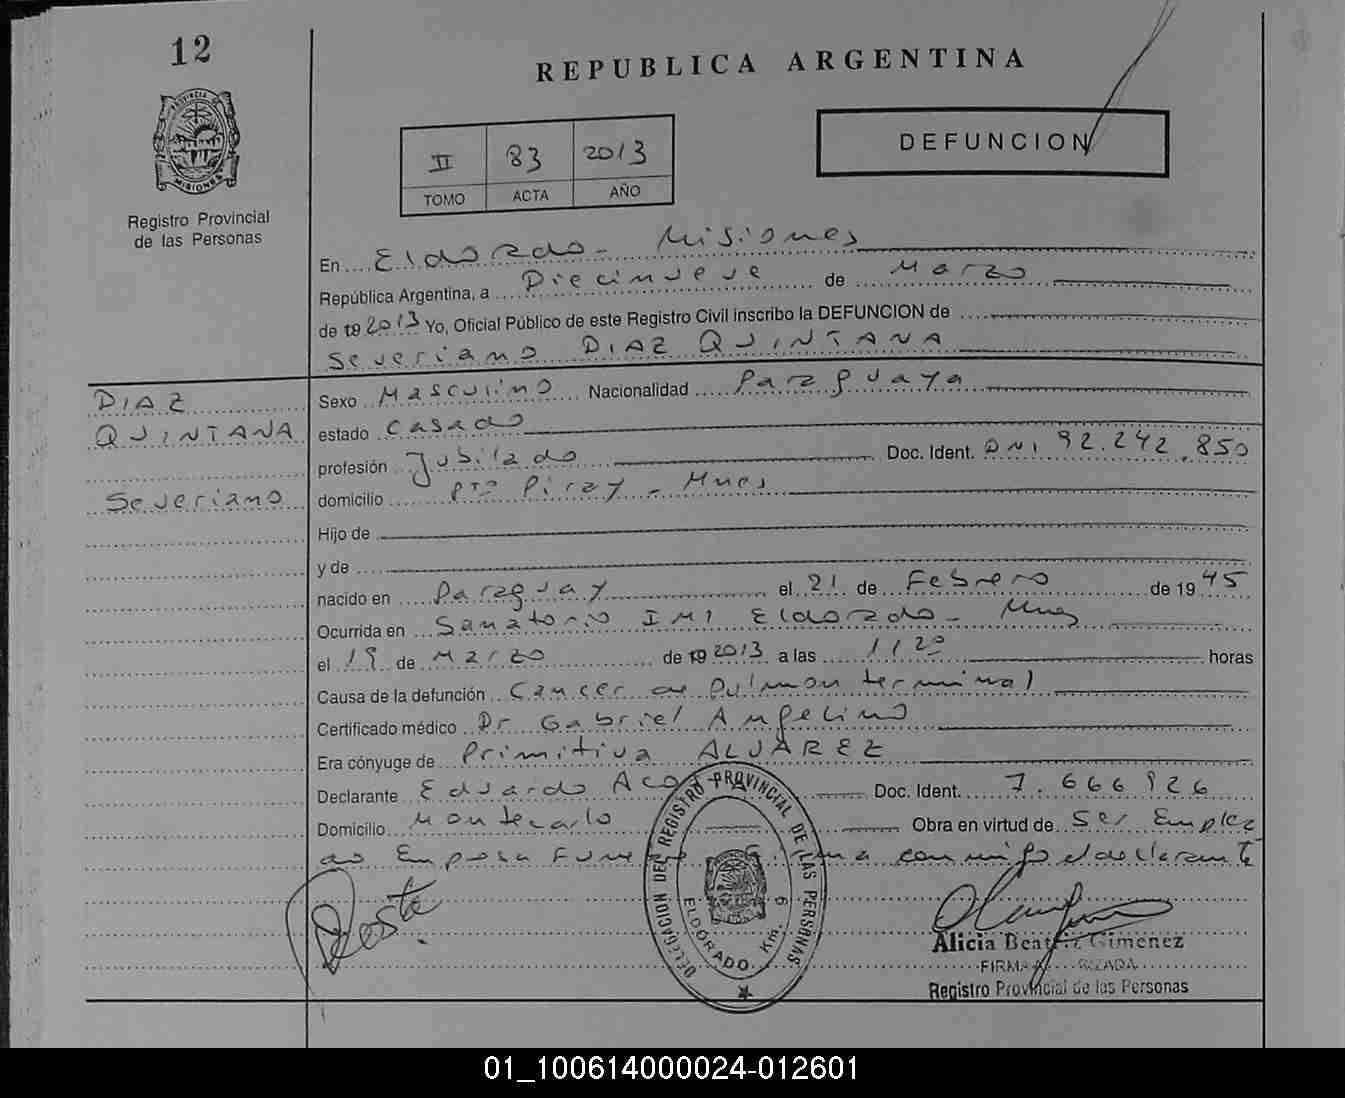 12
REPUBLICA ARGENTINA
PROVINCIA DE
MISIONES
Registro Provincial
de las Personas
II 83 2013
TOMO ACTA AÑO
DEFUNCION
En Eldorado - Misiones
República Argentina, a Diecinueve de Marzo
de 19 2013 Yo, Oficial Público de este Registro Civil inscribo la DEFUNCION de
Severiano DIAZ QUINTANA
DIAZ
QUINTANA
Severiano
Sexo Masculino Nacionalidad Paraguaya
estado Casado
profesión Jubilado Doc. Ident. DNI 92.242.850
domicilio Pto Piray - Mnes
Hijo de
y de
nacido en Paraguay el 21 de Febrero de 1945
Ocurrida en Sanatorio IMI Eldorado - Mnes
el 19 de Marzo de 19 2013 a las 11 20 horas
Causa de la defunción Cancer de Pulmon terminal
Certificado médico Dr Gabriel Angelino
Era cónyuge de Primitiva ALVAREZ
Declarante Eduardo Doc. Ident. 7.666926
Domicilio Montecarlo Obra en virtud de Ser Emplea
do Empresa conmigo el declarante
DELEGACION DEL REGISTRO PROVINCIAL DE LAS PERSONAS
ELDORADO Km. 9
Alicia Beatriz Gimenez
FIRMA
Registro Provincial de las Personas
01_100614000024-012601